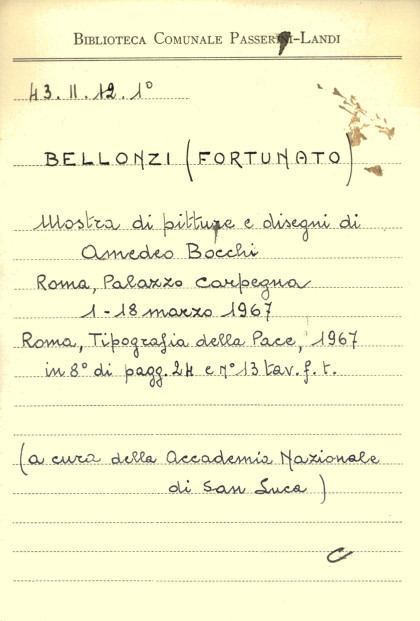 BIBLIOTECA COMUNALE PASSERINI-LANDI
43. II. 12. 1°
BELLONZI (FORTUNATO)
Mostra di pitture e disegni di
Amedeo Bocchi
Roma, Palazzo Carpegna
1 - 18 marzo 1967
Roma, Tipografia della Pace, 1967
in 8° di pagg. 24 e n° 13 tav. f. t.
(a cura della Accademia Nazionale
di San Luca)
C